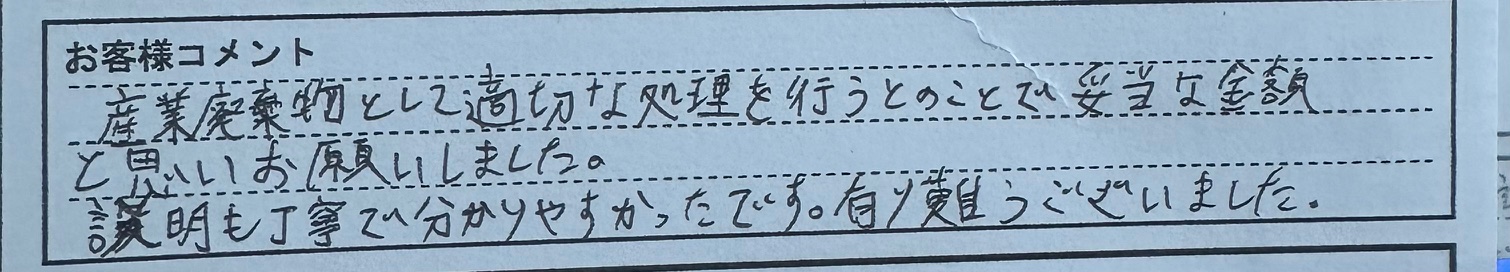 お客様コメント
産業廃棄物として適切な処理を行うとのことで妥当な金額
と思いお願いしました。
説明も丁寧で分かりやすかったです。有り難うございました。